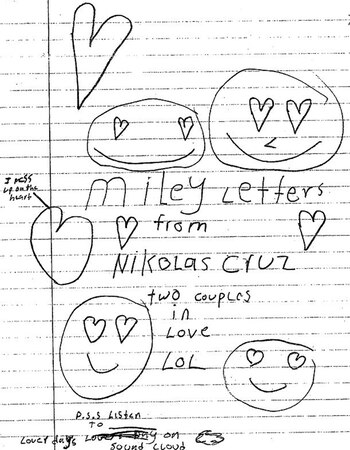 I mess
up on the
heart
Miley Letters
from
NIKOLAS CRUZ
two couples
in
LOVE
LOL
P.S.S Listen
TO
Lover days Lover Day on
Sound Cloud